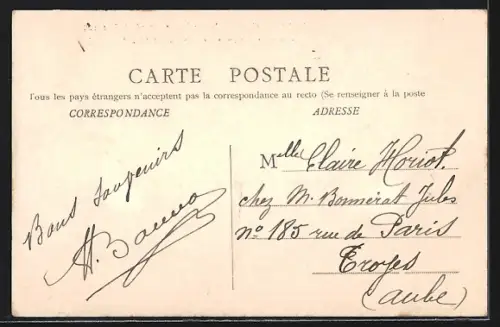 CARTE POSTALE
Tous les pays étrangers n'acceptent pas la correspondance au recto (Se renseigner à la poste
CORRESPONDANCE
ADRESSE
Bons Souvenirs
Melle Claire Horiot.
chez M. Bonnerat Jules
no 185 rue de Paris
Troyes
(Aube)